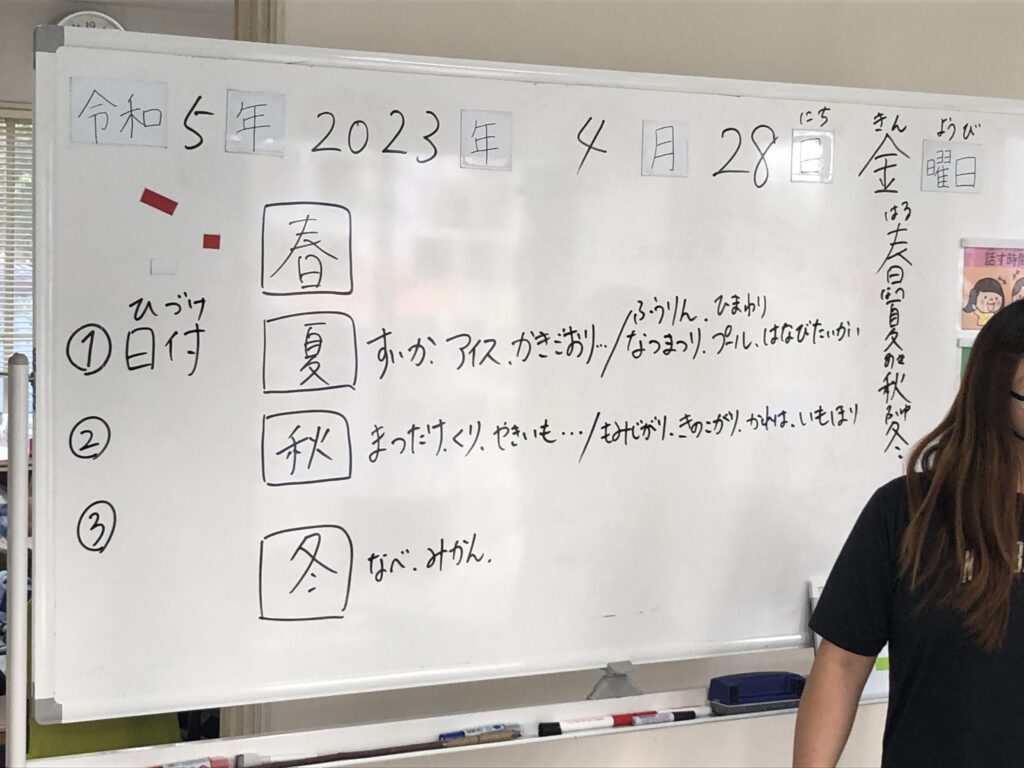 令和 5 年 2023 年 4 月 28 日 金 曜日
にち きん ようび
はる なつ あき ふゆ
春 夏 秋 冬
春
ひづけ
① 日付
夏 すいか、アイス、かきごおり…/なつまつり、プール、はなびたいかい
ふうりん、ひまわり
②
秋 まつたけ、くり、やきいも…/もみじがり、きのこがり、かれは、いもほり
③
冬 なべ、みかん、
話す時
19